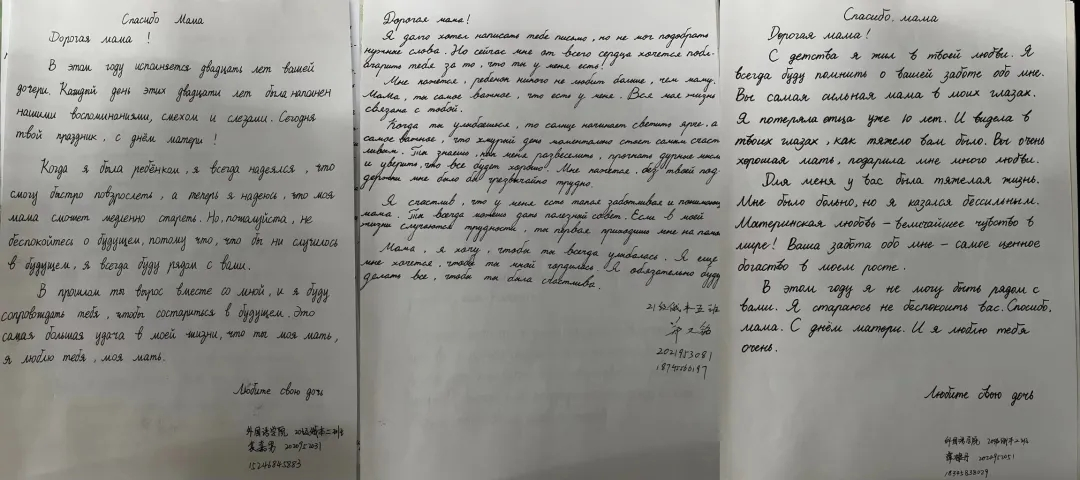 Спасибо Мама
Дорогая мама !
В этом году исполняется двадцать лет вашей
дочери. Каждый день этих двадцати лет была наполнен
нашими воспоминаниями, смехом и слезами. Сегодня
твой праздник, с днём матери !
Когда я была ребёнком, я всегда надеялся, что
смогу быстро повзрослеть, а теперь я надеюсь, что моя
мама сможет медленно стареть. Но, пожалуйста, не
беспокойтесь о будущем, потому что, что бы ни случилось
в будущем, я всегда буду рядом с вами.
В прошлом ты вырос вместе со мной, и я буду
сопровождать тебя, чтобы состариться в будущем. Это
самая большая удача в моей жизни, что ты моя мать,
я люблю тебя, моя мать.
Любите свою дочь
外国语学院
2020952031
15246845883
Дорогая мама!
Я долго хотел написать тебе письмо, но не мог подобрать
нужные слова. Но сейчас мне от всего сердца хочется побл-
агодарить тебя за то, что ты у меня есть!
Мне кажется, ребенок никого не любит больше, чем маму.
Мама, ты самое важное, что есть у меня. Вся моя жизнь
связана с тобой.
Когда ты улыбаешься, то солнце начинает светить ярче, а
самое важное, что хмурый день моментально стает самым счаст
ливым. Ты знаешь, как меня развеселить, прогнать дурные мысли
и уверить, что все будет хорошо! Мне кажется, без твоей под-
держки мне было бы чрезвычайно трудно.
Я счастлив, что у меня есть такая заботливая и понимающ
мама. Ты всегда можешь дать полезный совет. Если в моей
жизни случаются трудности, ты первая приходишь мне на помо
Мама, я хочу, чтобы ты всегда улыбалась. Я еще
мне хочется, чтобы ты мной гордилась. Я обязательно буду
делать все, чтобы ты была счастлива.
2021953081
18745560197
Спасибо, мама
Дорогая мама!
С детства я жил в твоей любви. Я
всегда буду помнить о вашей заботе обо мне.
Вы самая сильная мама в моих глазах.
Я потеряла отца уже 10 лет. И видела в
твоих глазах, как тяжело вам было. Вы очень
хорошая мать, подарила мне много любви.
Для меня у вас была тяжелая жизнь.
Мне было больно, но я казался бессильным.
Материнская любовь – величайшее чувство в
мире! Ваша забота обо мне – самое ценное
богаство в моем росте.
В этом году я не могу быть рядом с
вами. Я стараюсь не беспокоить вас. Спасибо,
мама. С днём матери. И я люблю тебя
очень.
Любите свою дочь
外国语学院
2020952051